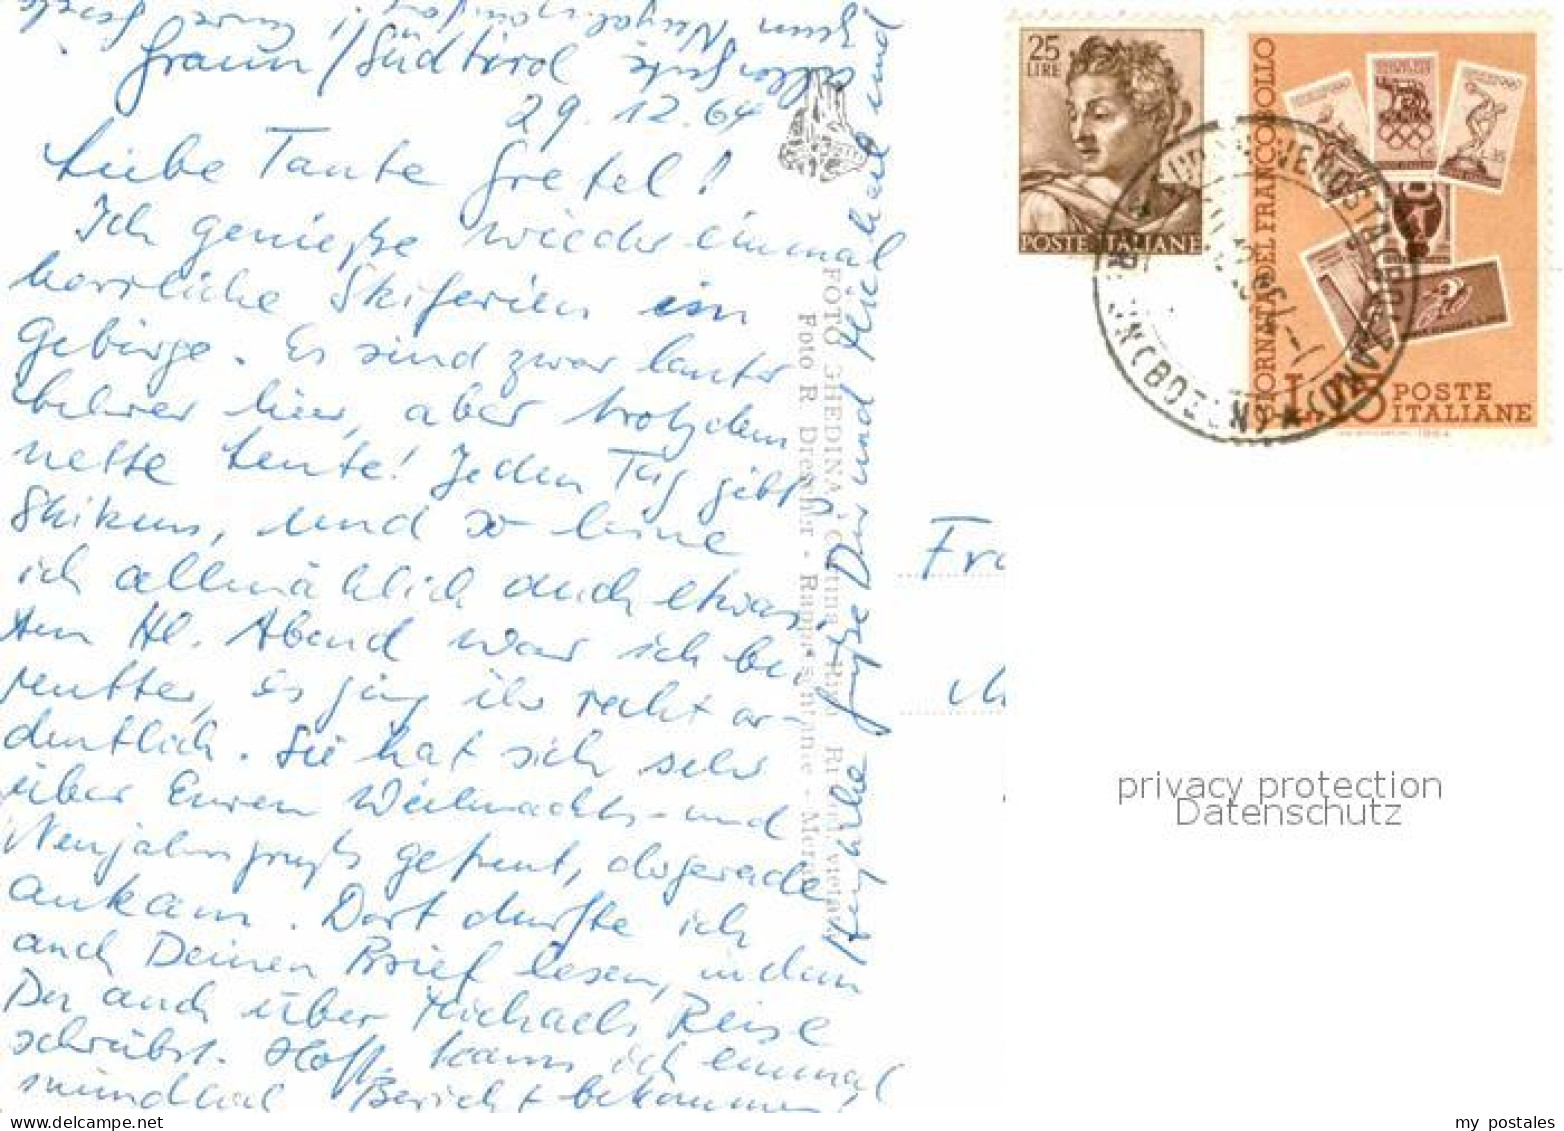 Graun/Südtirol
29.12.64
Liebe Tante Gretel!
Ich genieße wieder einmal
herrliche Skiferien im
Gebirge. Es sind zwar lauter
Lehrer hier, aber trotzdem
nette Leute! Jeden Tag gibts
Skikurs, und so lerne
ich allmählich auch etwas.
Am Hl. Abend war ich bei
Mutter, es ging ihr recht or-
dentlich. Sie hat sich sehr
über Euren Weihnachts- und
Neujahrsgruß gefreut, der gerade
ankam. Dort durfte ich
auch Deinen Brief lesen, in dem
Du auch über Michaels Reise
schreibst. Hoff. kann ich einmal
mündlich Bericht bekommen!
Dir und Michael und
zum Neujahrsanfang
FOTO GHEDINA - Cortina
Foto R. Drescher - Rappresentante - Mera
25
LIRE
POSTE ITALIANE
GIORNATA DEL FRANCOBOLLO
L. 15
POSTE
ITALIANE
1964
Fr
M
privacy protection
Datenschutz
my_postales